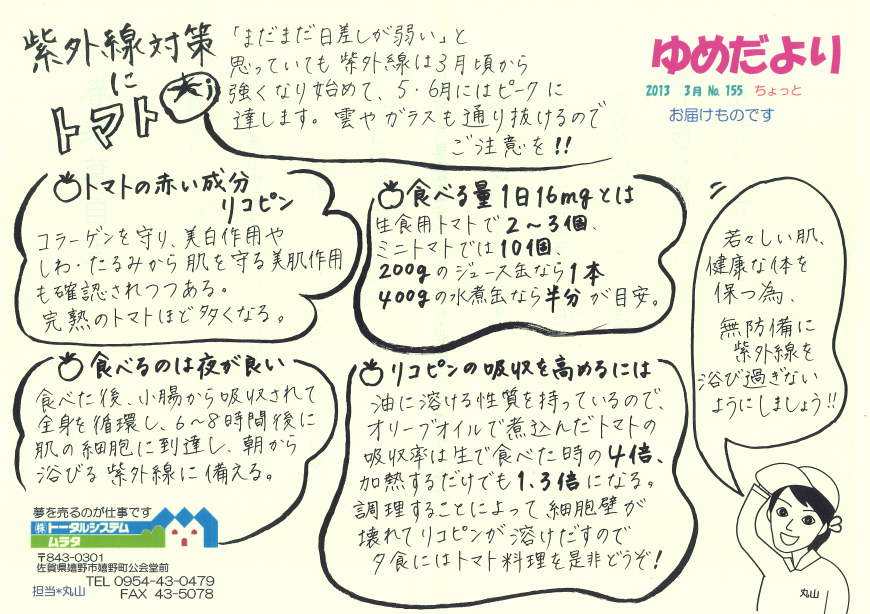 紫外線対策
に
トマト
「まだまだ日差しが弱い」と
思っていても紫外線は3月頃から
強くなり始めて、5・6月にはピークに
達します。雲やガラスも通り抜けるので
ご注意を!!
ゆめだより
2013 3月 No. 155 ちょっと
お届けものです
トマトの赤い成分
リコピン
コラーゲンを守り、美白作用や
しわ・たるみから肌を守る美肌作用
も確認されつつある。
完熟のトマトほど多くなる。
食べる量1日16mgとは
生食用トマトで2〜3個、
ミニトマトでは10個、
200gのジュース缶なら1本
400gの水煮缶なら半分が目安。
食べるのは夜が良い
食べた後、小腸から吸収されて
全身を循環し、6〜8時間後に
肌の細胞に到達し、朝から
浴びる紫外線に備える。
リコピンの吸収を高めるには
油に溶ける性質を持っているので、
オリーブオイルで煮込んだトマトの
吸収率は生で食べた時の4倍、
加熱するだけでも1.3倍になる。
調理することによって細胞壁が
壊れてリコピンが溶けだすので
夕食にはトマト料理を是非どうぞ!
若々しい肌、
健康な体を
保つ為、
無防備に
紫外線を
浴び過ぎない
ようにしましょう!!
丸山
夢を売るのが仕事です
㈱トータルシステム
ムラタ
〒843-0301
佐賀県嬉野市嬉野町公会堂前
TEL 0954-43-0479
担当*丸山 FAX 43-5078